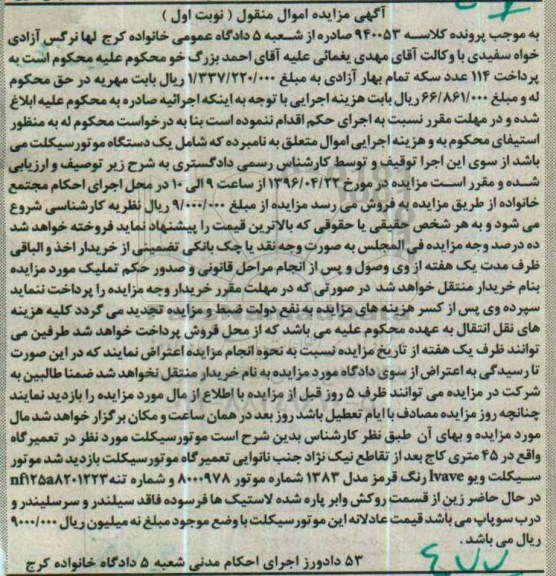 آگهی مزایده اموال منقول ( نوبت اول )
به موجب پرونده کلاسه ۹۴۰۰۵۳ صادره از شعبه ۵ دادگاه عمومی خانواده کرج لها نرگس آزادی
خواه سفیدی با وکالت آقای مهدی یغمائی علیه آقای احمد بزرگ خو محکوم علیه محکوم است به
پرداخت ۱۱۴ عدد سکه تمام بهار آزادی به مبلغ ۱/۳۳۷/۲۲۰/۰۰۰ ریال بابت مهریه در حق محکوم
له و مبلغ ۶۶/۸۶۱/۰۰۰ ریال بابت هزینه اجرایی با توجه به اینکه اجرائیه صادره به محکوم علیه ابلاغ
شده و در مهلت مقرر نسبت به اجرای حکم اقدام ننموده است بنا به درخواست محکوم له به منظور
استیفای محکوم به و هزینه اجرایی اموال متعلق به نامبرده که شامل یک دستگاه موتورسیکلت می
باشد از سوی این اجرا توقیف و توسط کارشناس رسمی دادگستری به شرح زیر توصیف و ارزیابی
شده و مقرر است مزایده در مورخ ۱۳۹۶/۰۴/۲۲ از ساعت ۹ الی ۱۰ در محل اجرای احکام مجتمع
خانواده از طریق مزایده به فروش می رسد مزایده از مبلغ ۹/۰۰۰/۰۰۰ ریال نظریه کارشناسی شروع
می شود و به هر شخص حقیقی یا حقوقی که بالاترین قیمت را پیشنهاد نماید فروخته خواهد شد
ده درصد وجه مزایده فی المجلس به صورت وجه نقد یا چک بانکی تضمینی از خریدار اخذ و الباقی
ظرف مدت یک هفته از وی وصول و پس از انجام مراحل قانونی و صدور حکم تملیک مورد مزایده
بنام خریدار منتقل خواهد شد در صورتی که در مهلت مقرر خریدار وجه مزایده را پرداخت ننماید
سپرده وی پس از کسر هزینه های مزایده به نفع دولت ضبط و مزایده تجدید می گردد کلیه هزینه
های نقل انتقال به عهده محکوم علیه می باشد که از محل فروش پرداخت خواهد شد طرفین می
توانند ظرف یک هفته از تاریخ مزایده نسبت به نحوه انجام مزایده اعتراض نمایند که در این صورت
تا رسیدگی به اعتراض از سوی دادگاه مورد مزایده به نام خریدار منتقل نخواهد شد ضمنا طالبین به
شرکت در مزایده می توانند ظرف ۵ روز قبل از مزایده با اطلاع از مال مورد مزایده را بازدید نمایند
چنانچه روز مزایده مصادف با ایام تعطیل باشد روز بعد در همان ساعت و مکان برگزار خواهد شد مال
مورد مزایده و بهای آن طبق نظر کارشناس بدین شرح است موتورسیکلت مورد نظر در تعمیرگاه
واقع در ۴۵ متری کاج بعد از تقاطع نیک نژاد جنب نانوایی تعمیرگاه موتورسیکلت بازدید شد موتور
سیکلت ویو lvave رنگ قرمز مدل ۱۳۸۳ شماره موتور ۸۰۰۰۹۷۸ و شماره تنه nf۱۲۵a۸۲۰۱۲۲۳
در حال حاضر زین از قسمت روکش وابر پاره شده لاستیک ها فرسوده فاقد سیلندر و سرسیلندر و
درب سوپاپ می باشد قیمت عادلانه این موتورسیکلت با وضع موجود مبلغ نه میلیون ریال ۹۰۰۰/۰۰۰
ریال می باشد .
۵۳ دادورز اجرای احکام مدنی شعبه ۵ دادگاه خانواده کرج